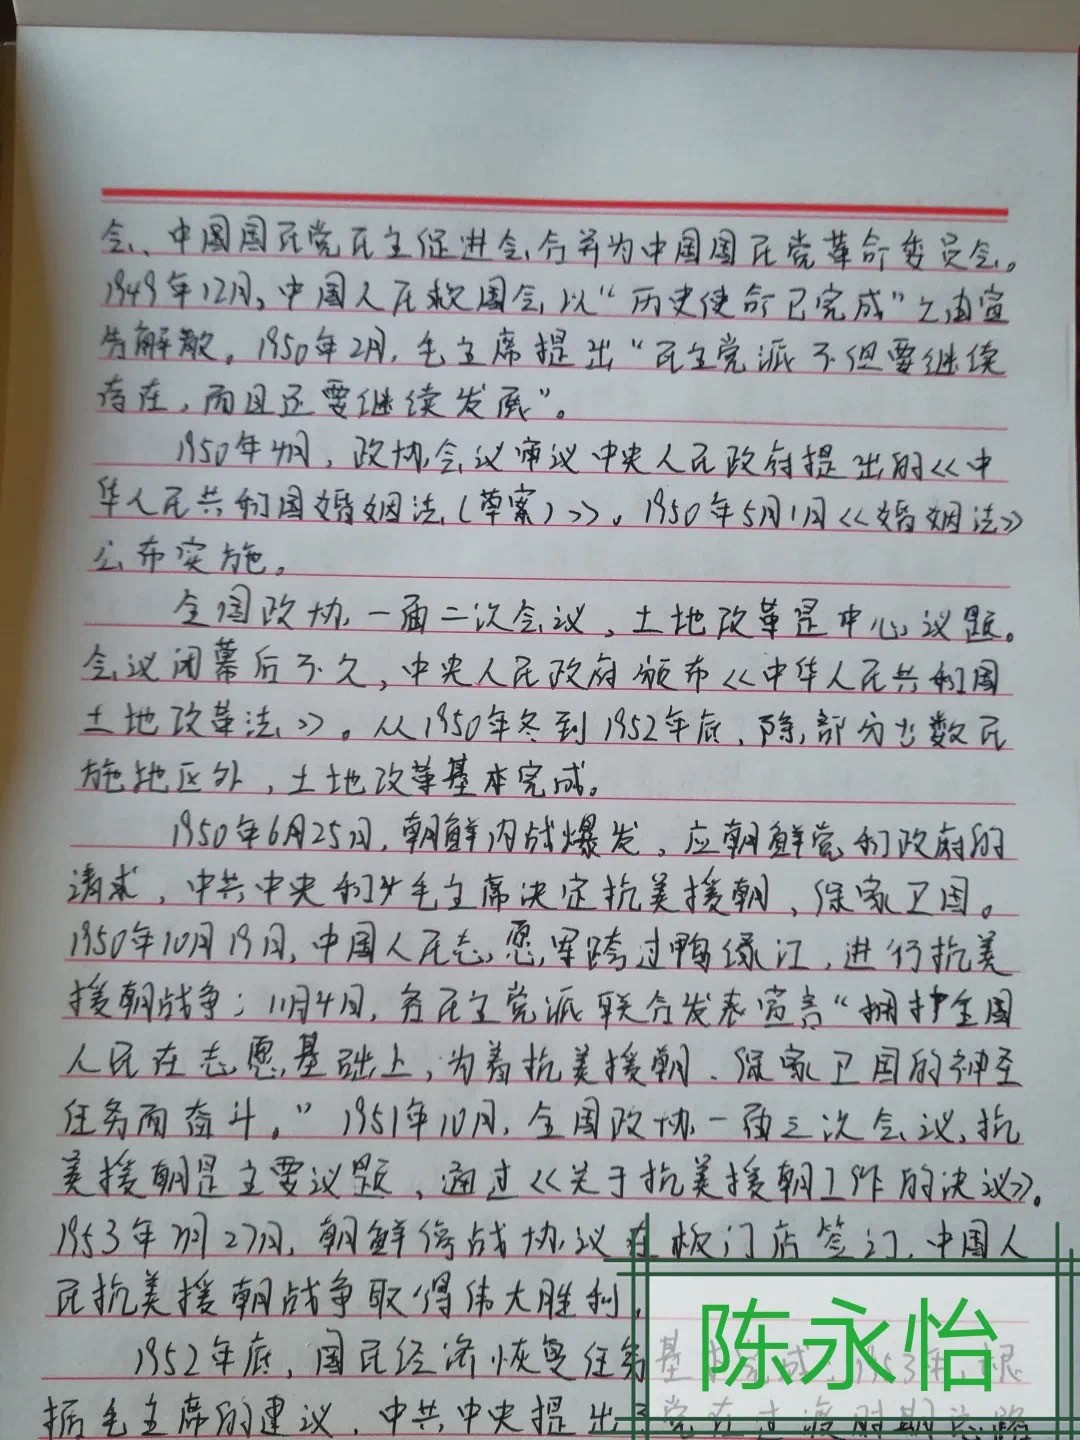 会、中国国民党民主促进会合并为中国国民党革命委员会。
1949年12月,中国人民救国会以“历史使命已完成”之由宣
告解散。1950年2月,毛主席提出“民主党派不但要继续
存在,而且还要继续发展”。
1950年4月,政协会议审议中央人民政府提出的《中
华人民共和国婚姻法(草案)》。1950年5月1日《婚姻法》
公布实施。
全国政协一届二次会议,土地改革是中心议题。
会议闭幕后不久,中央人民政府颁布《中华人民共和国
土地改革法》。从1950年冬到1952年底,除部分少数民
施地区外,土地改革基本完成。
1950年6月25日,朝鲜内战爆发,应朝鲜党和政府的
请求,中共中央和毛主席决定抗美援朝、保家卫国。
1950年10月19日,中国人民志愿军跨过鸭绿江,进行抗美
援朝战争;11月4日,各民主党派联合发表宣言“拥护全国
人民在志愿基础上,为着抗美援朝、保家卫国的神圣
任务而奋斗。”1951年10月,全国政协一届三次会议,抗
美援朝是主要议题,通过《关于抗美援朝工作的决议》。
1953年7月27日,朝鲜停战协议在板门店签订,中国人
民抗美援朝战争取得伟大胜利,
1952年底,国民经济恢复任务基本完成,1953年,根
据毛主席的建议,中共中央提出了党在过渡时期总路
陈永怡